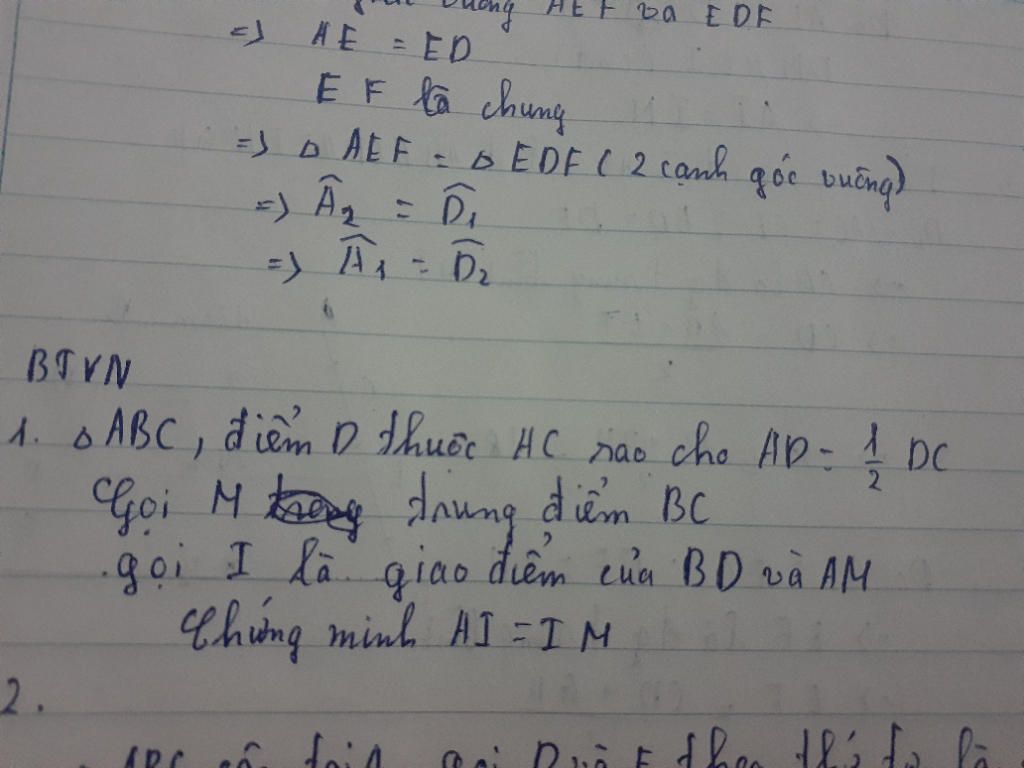 vuông AEF và EDF
=> AE = ED
EF là chung
=> △ AEF = △ EDF ( 2 cạnh góc vuông)
=> Â₂ = D̂₁
=> Â₁ = D̂₂
BTVN
1. △ ABC, điểm D thuộc AC sao cho AD = 1/2 DC
Gọi M trung điểm BC
gọi I là giao điểm của BD và AM
Chứng minh AI = IM
2.
ABC cân tại A gọi D và E theo thứ tự là